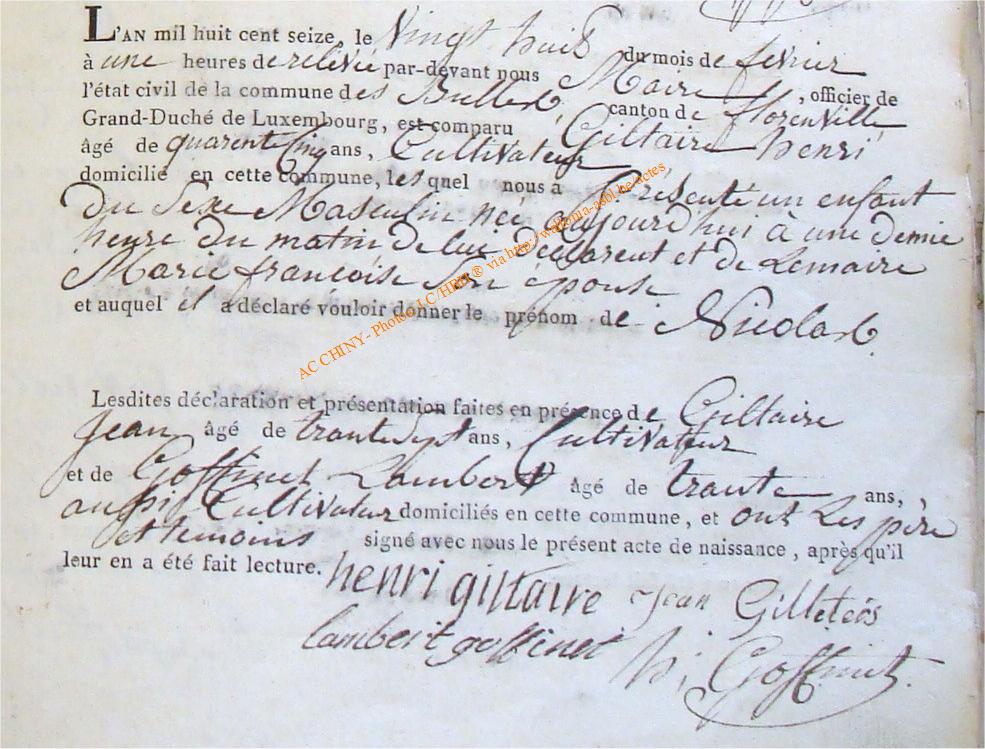 L'AN mil huit cent seize, le Vingt huit du mois de fevrier
à une heures de relevée par-devant nous Maire, officier de
l'état civil de la commune des Bulles, canton de florenville
Grand-Duché de Luxembourg, est comparu Giltaire henri
âgé de quarente Cinq ans, Cultivateur
domicilié en cette commune, lesquel nous à présenté un enfant
du Sexe Masculin née aujourd'hui à une demie
heure du matin de lui déclarent et de Lemaire
Marie françoise son épouse
et auquel il a déclaré vouloir donner le prénom de Nicolas.
Lesdites déclaration et présentation faites en présence de Giltaire
Jean âgé de trante Sept ans, Cultivateur
et de Goffinet Lambert âgé de trante ans,
aussi Cultivateur domiciliés en cette commune, et ont Les père
et temoins signé avec nous le présent acte de naissance, après qu'il
leur en a été fait lecture. henri giltaire Jean
lambert goffinet h. j. Goffinet.
AC CHINY - Photos LC/HBH ® via http://wallonia-asbl.be/actes